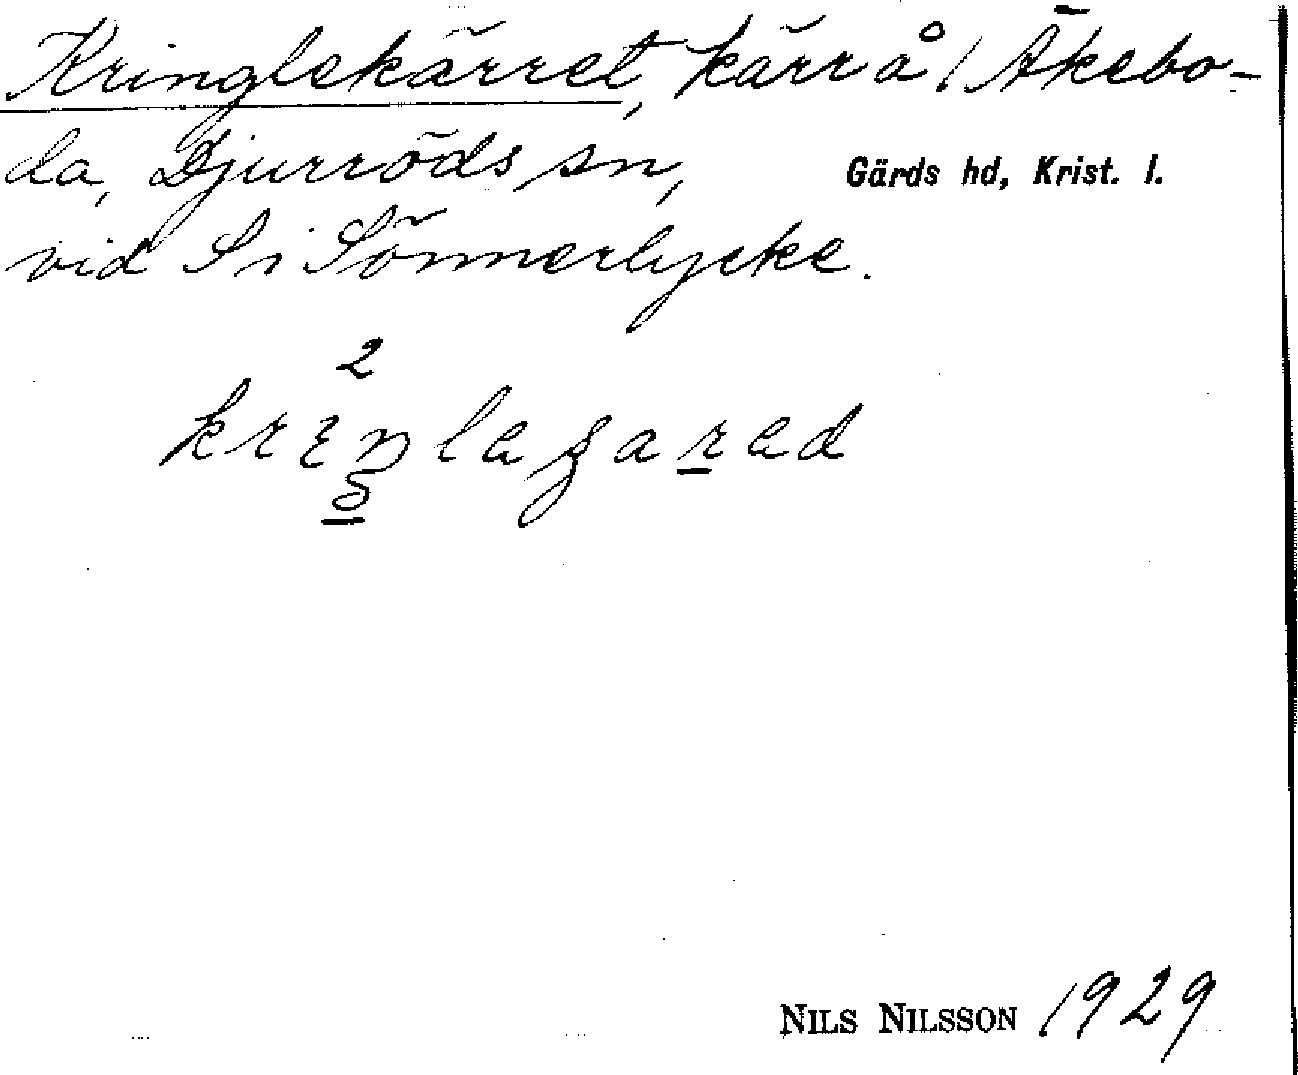 Kringlekärret, kärr å 1 Äkebo-
da, Djurröds sn, Gärds hd, Krist. l.
vid S i Sönnerlycke.
2
NILS NILSSON 1929